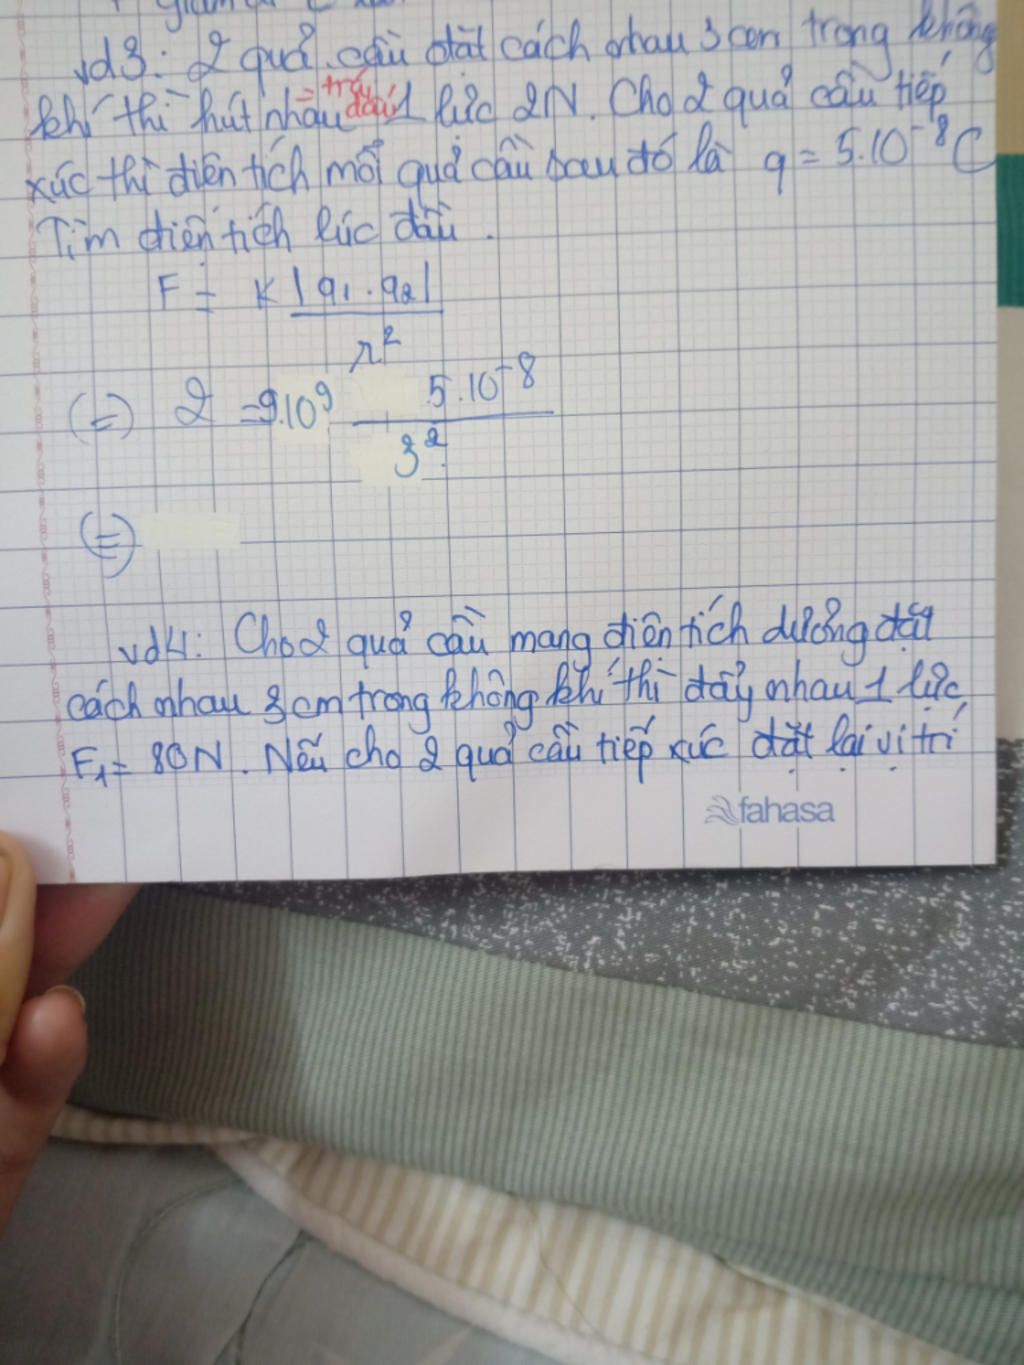 vd3: 2 quả cầu đặt cách nhau 3 cm trong không
= trái dấu
khí thì hút nhau 1 lực 2N. Cho 2 quả cầu tiếp
xúc thì điện tích mỗi quả cầu sau đó là q = 5.10⁻⁸C
Tìm điện tích lúc đầu.
F = K|q₁.q₂|
r²
(=) 2 = 9.10⁹ 5.10⁻⁸
3²
(=)
vd4: Cho 2 quả cầu mang điện tích dương đặt
cách nhau 3 cm trong không khí thì đẩy nhau 1 lực
F₁ = 80N. Nếu cho 2 quả cầu tiếp xúc đặt lại vị trí
fahasa